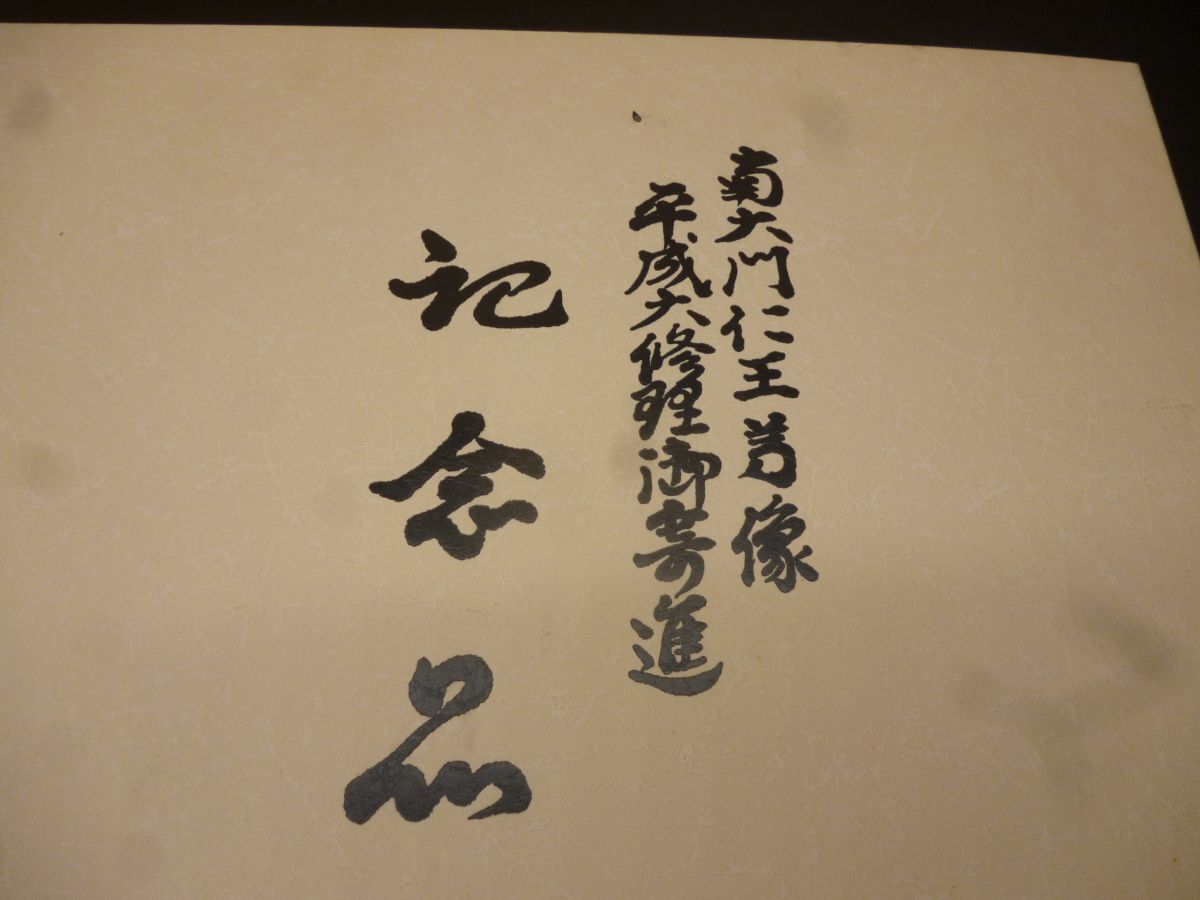 南大門仁王尊像
平成大修理御寄進
記念品